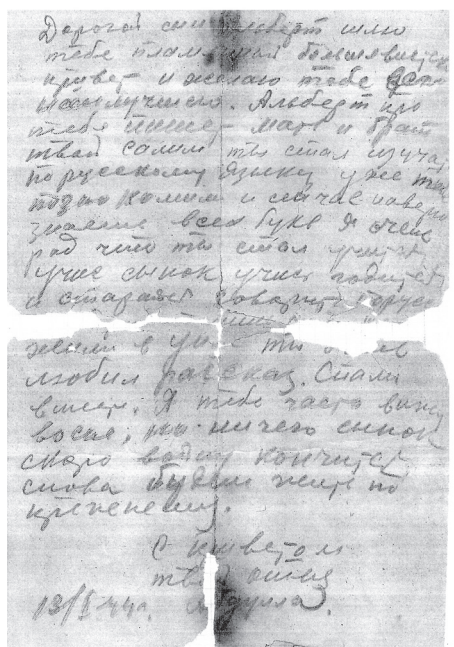 Дорогой сын Альберт шлю
тебе пламенный большевистск
привет и желаю тебе всего
наилучшего. Альберт про
тебя пишет мать и брат
твой Салим ты стал изучат
по русскому языку уже
познакомим и сейчас наверно
знаешь всех букв я очень
рад что ты стал учится
учис сынок учись годится
и старайся говорить
жили в
любил рассказ. Спали
вместе. Я тебе часто вижу
восне, но ничего сынок
скоро война кончится
снова будем жить по
прежнему.
С приветом
твой отец
13/I 44г. Абдулла.